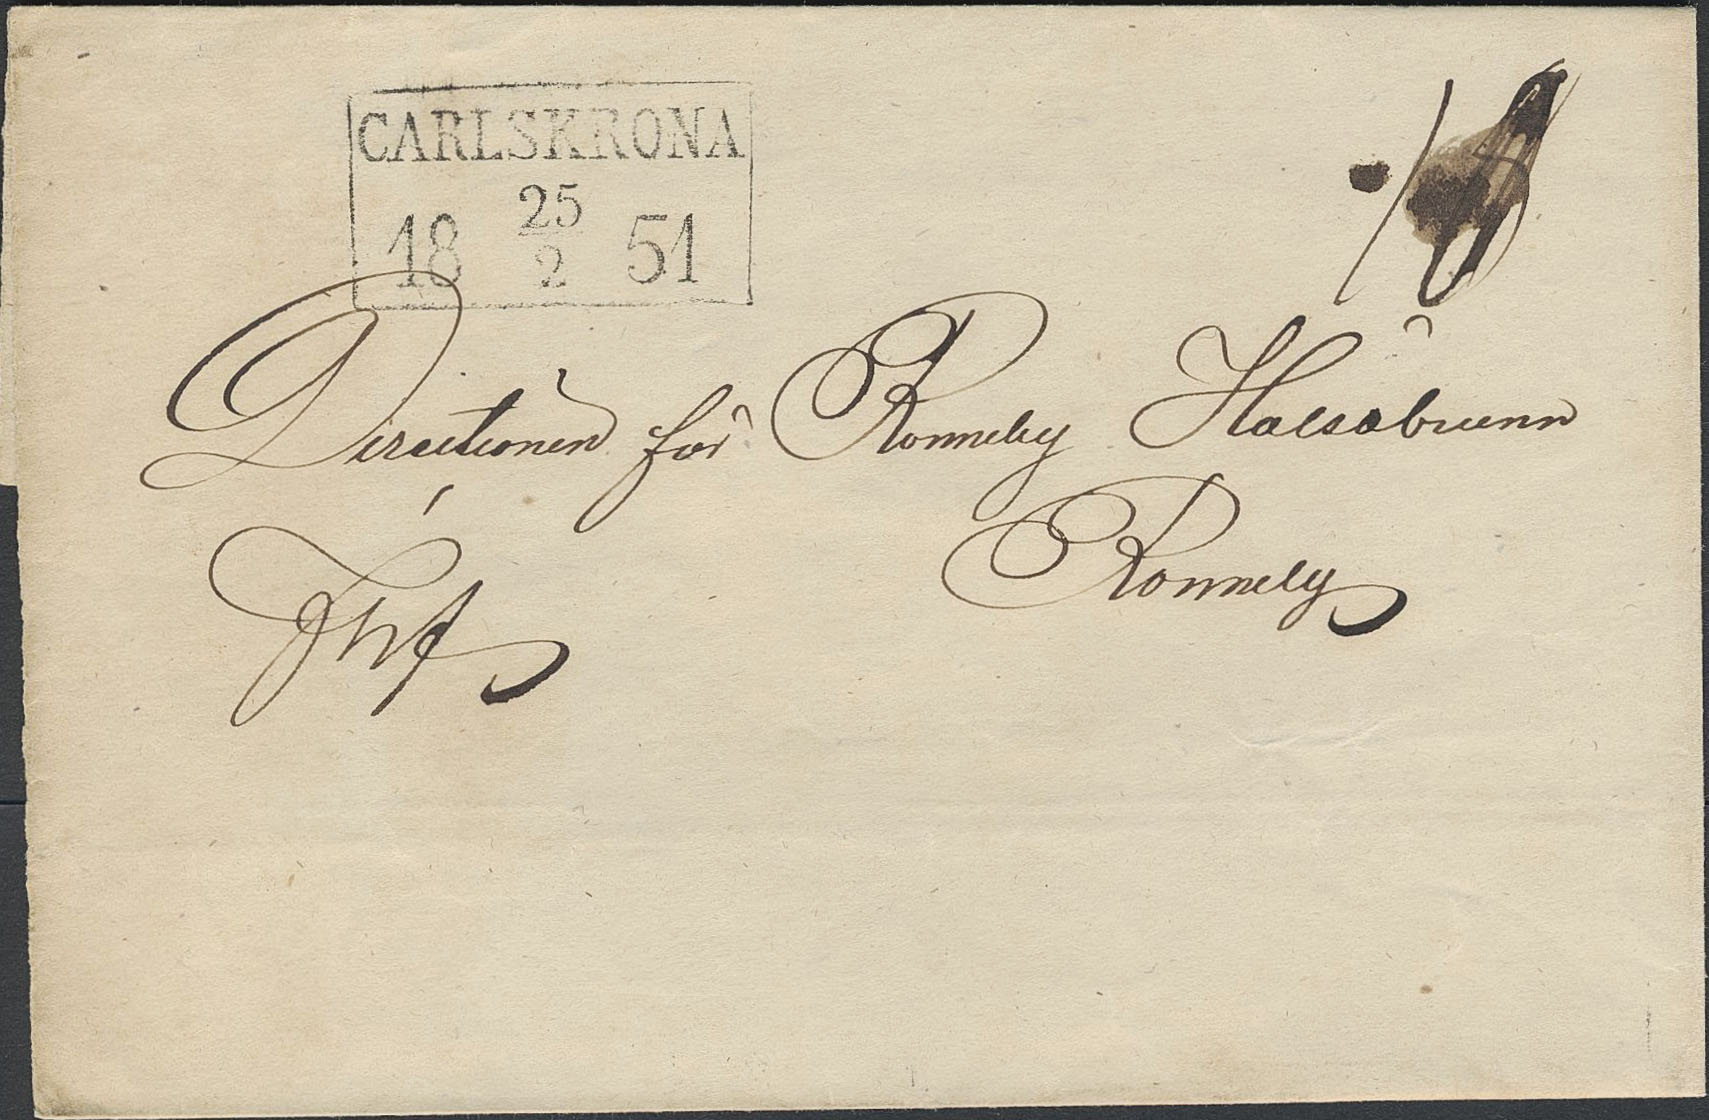 CARLSKRONA
25
18 2 51
Directionen för Ronneby Helsobrunn
Ronneby